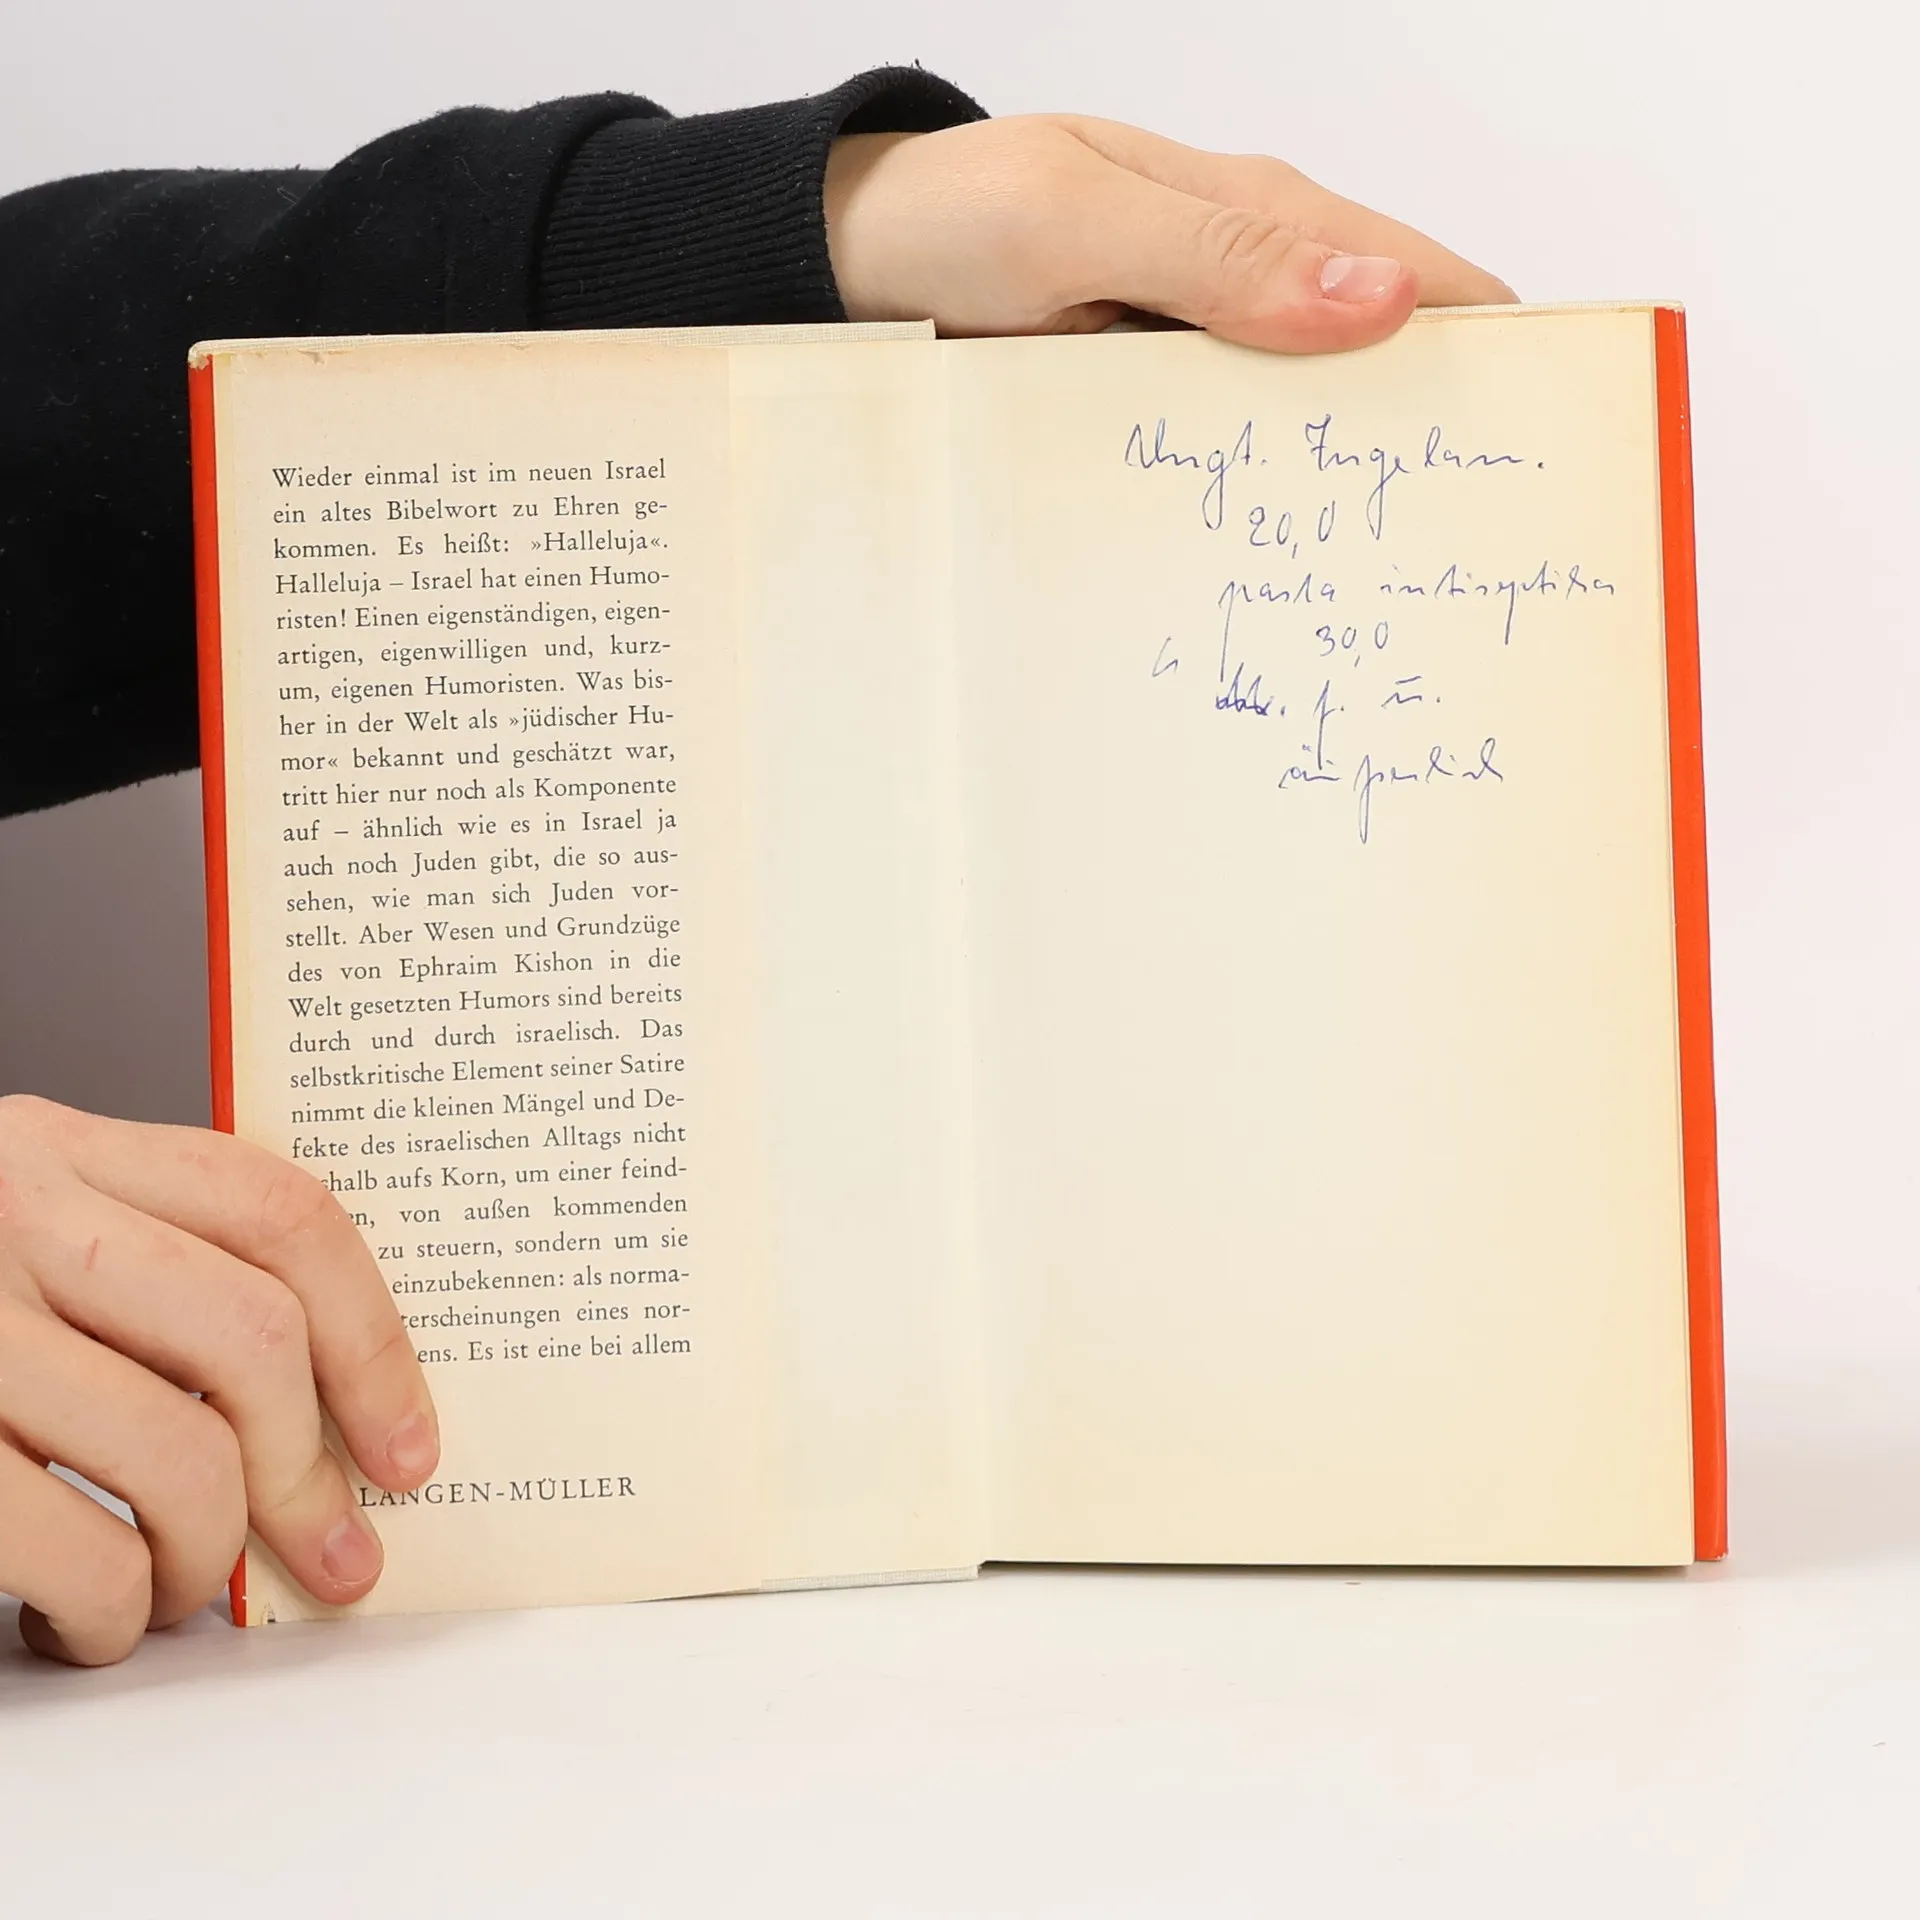 Wieder einmal ist im neuen Israel
ein altes Bibelwort zu Ehren ge-
kommen. Es heißt: »Halleluja«.
Halleluja – Israel hat einen Humo-
risten! Einen eigenständigen, eigen-
artigen, eigenwilligen und, kurz-
um, eigenen Humoristen. Was bis-
her in der Welt als »jüdischer Hu-
mor« bekannt und geschätzt war,
tritt hier nur noch als Komponente
auf – ähnlich wie es in Israel ja
auch noch Juden gibt, die so aus-
sehen, wie man sich Juden vor-
stellt. Aber Wesen und Grundzüge
des von Ephraim Kishon in die
Welt gesetzten Humors sind bereits
durch und durch israelisch. Das
selbstkritische Element seiner Satire
nimmt die kleinen Mängel und De-
fekte des israelischen Alltags nicht
halb aufs Korn, um einer feind-
en, von außen kommenden
zu steuern, sondern um sie
einzubekennen: als norma-
terscheinungen eines nor-
ens. Es ist eine bei allem
LANGEN-MÜLLER
Ungt.
20,0
pasta
30,0
äußerlich